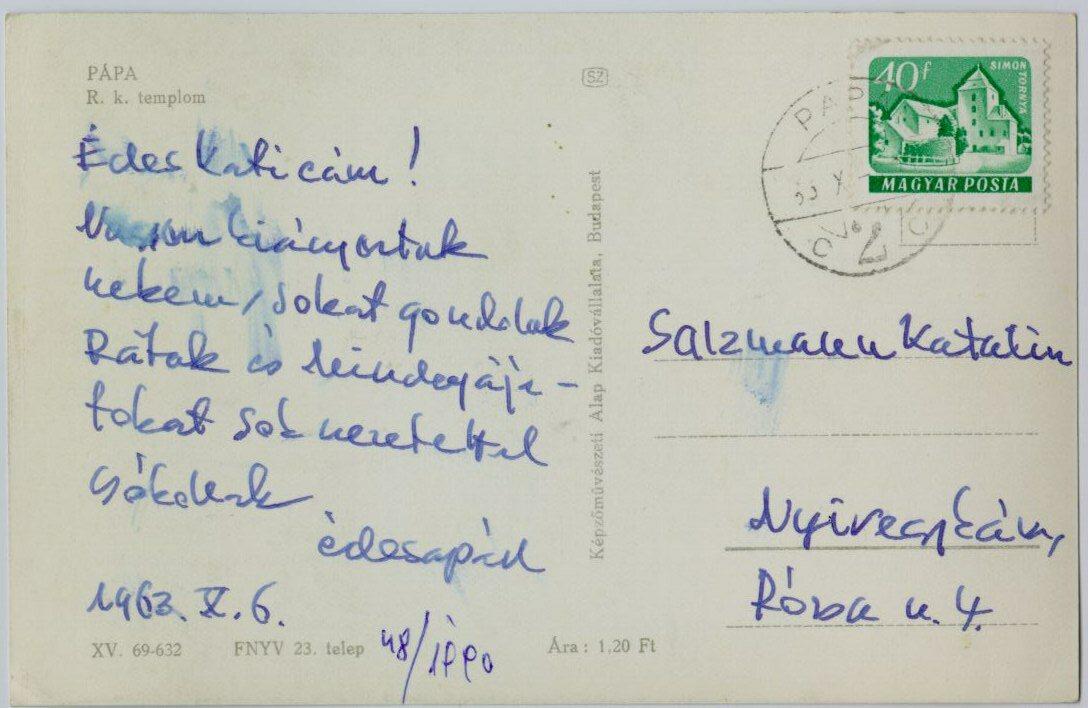 PÁPA
R. k. templom
SZ
40f
SIMON
TORNYA
MAGYAR POSTA
PÁPA
Édes Katicám!
Nagyon hiányoztok
nekem, sokat gondolok
Rátok és Mindegyáju-
tokat sok szeretettel
csókolok
édesapád
1963. X. 6.
Képzőművészeti Alap Kiadóvállalata, Budapest
Salzmann Katalin
Nyiregyháza,
Rózsa u. 4.
XV. 69-632
FNYV 23. telep
48/1990
Ára: 1,20 Ft